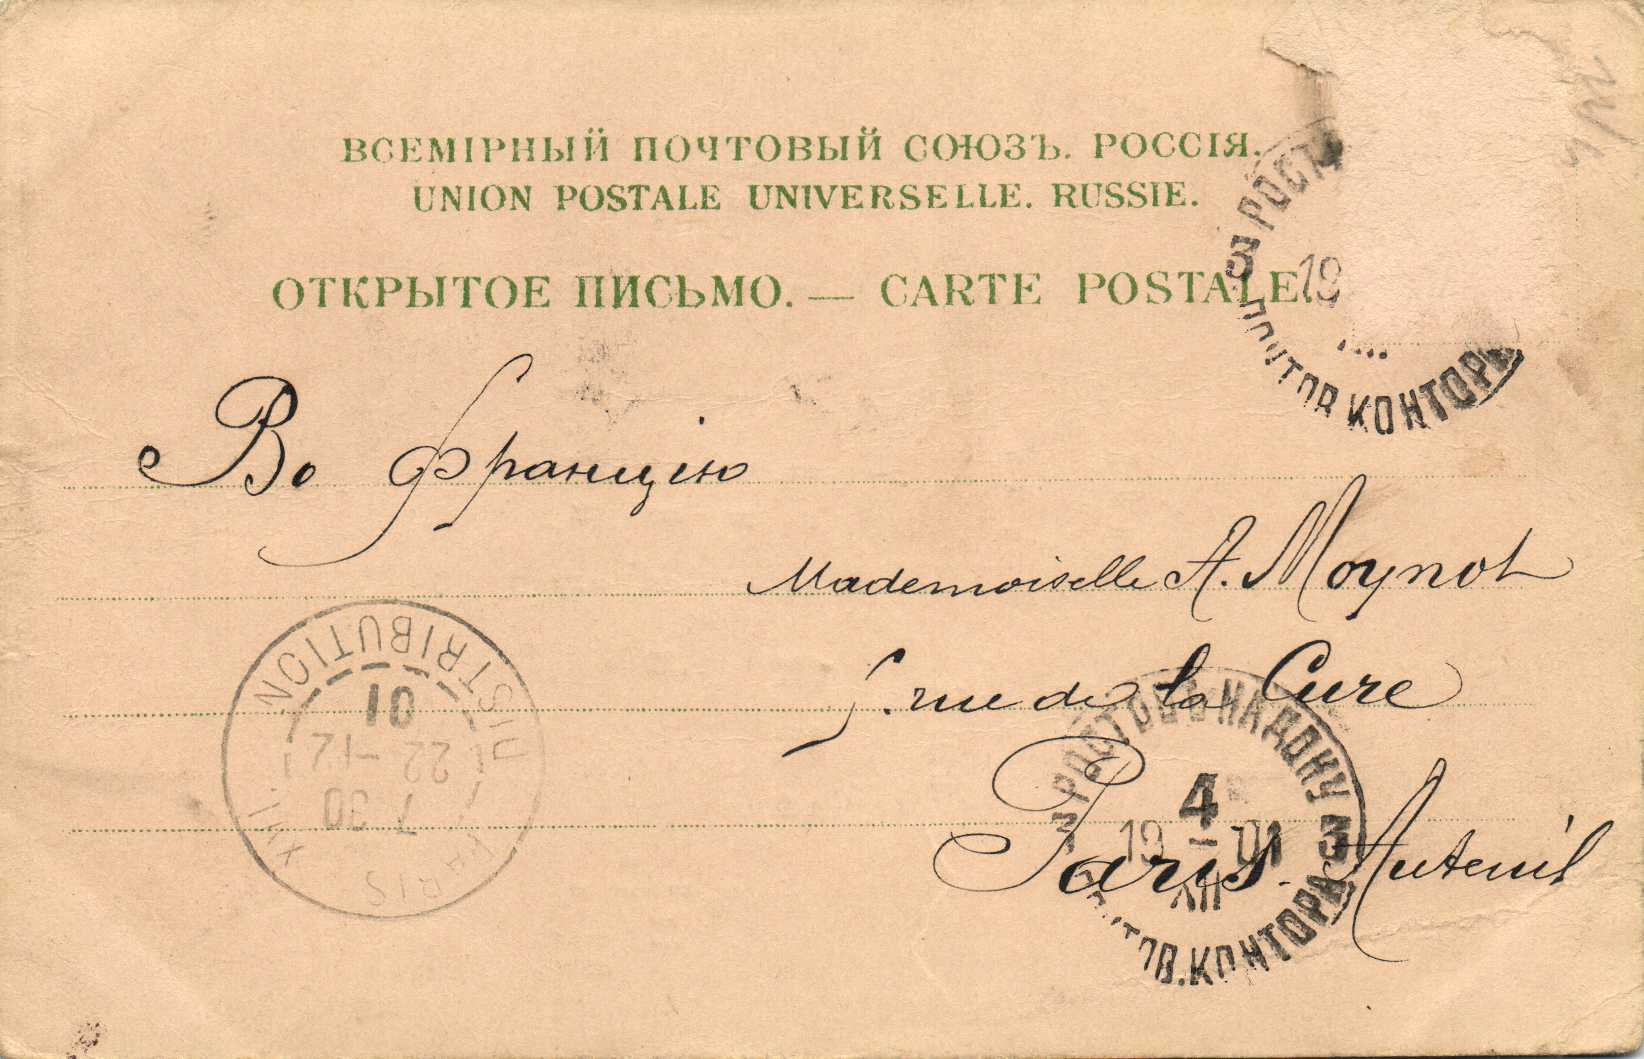 ВСЕМІРНЫЙ ПОЧТОВЫЙ СОЮЗЪ. РОССІЯ.
UNION POSTALE UNIVERSELLE. RUSSIE.
ОТКРЫТОЕ ПИСЬМО. — CARTE POSTALE.
3 РОСТ
19
ПОЧТОВ. КОНТОРА
Во Францію
Mademoiselle A. Moynot
5. rue de la Cure
Paris. Auteuil
DISTRIBUTION
01
22 -12
7 30
PARIS XVI
РОСТОВЪ НА ДОНУ
4
19 - 01
XII
3 3
ПОЧТОВ. КОНТОРА